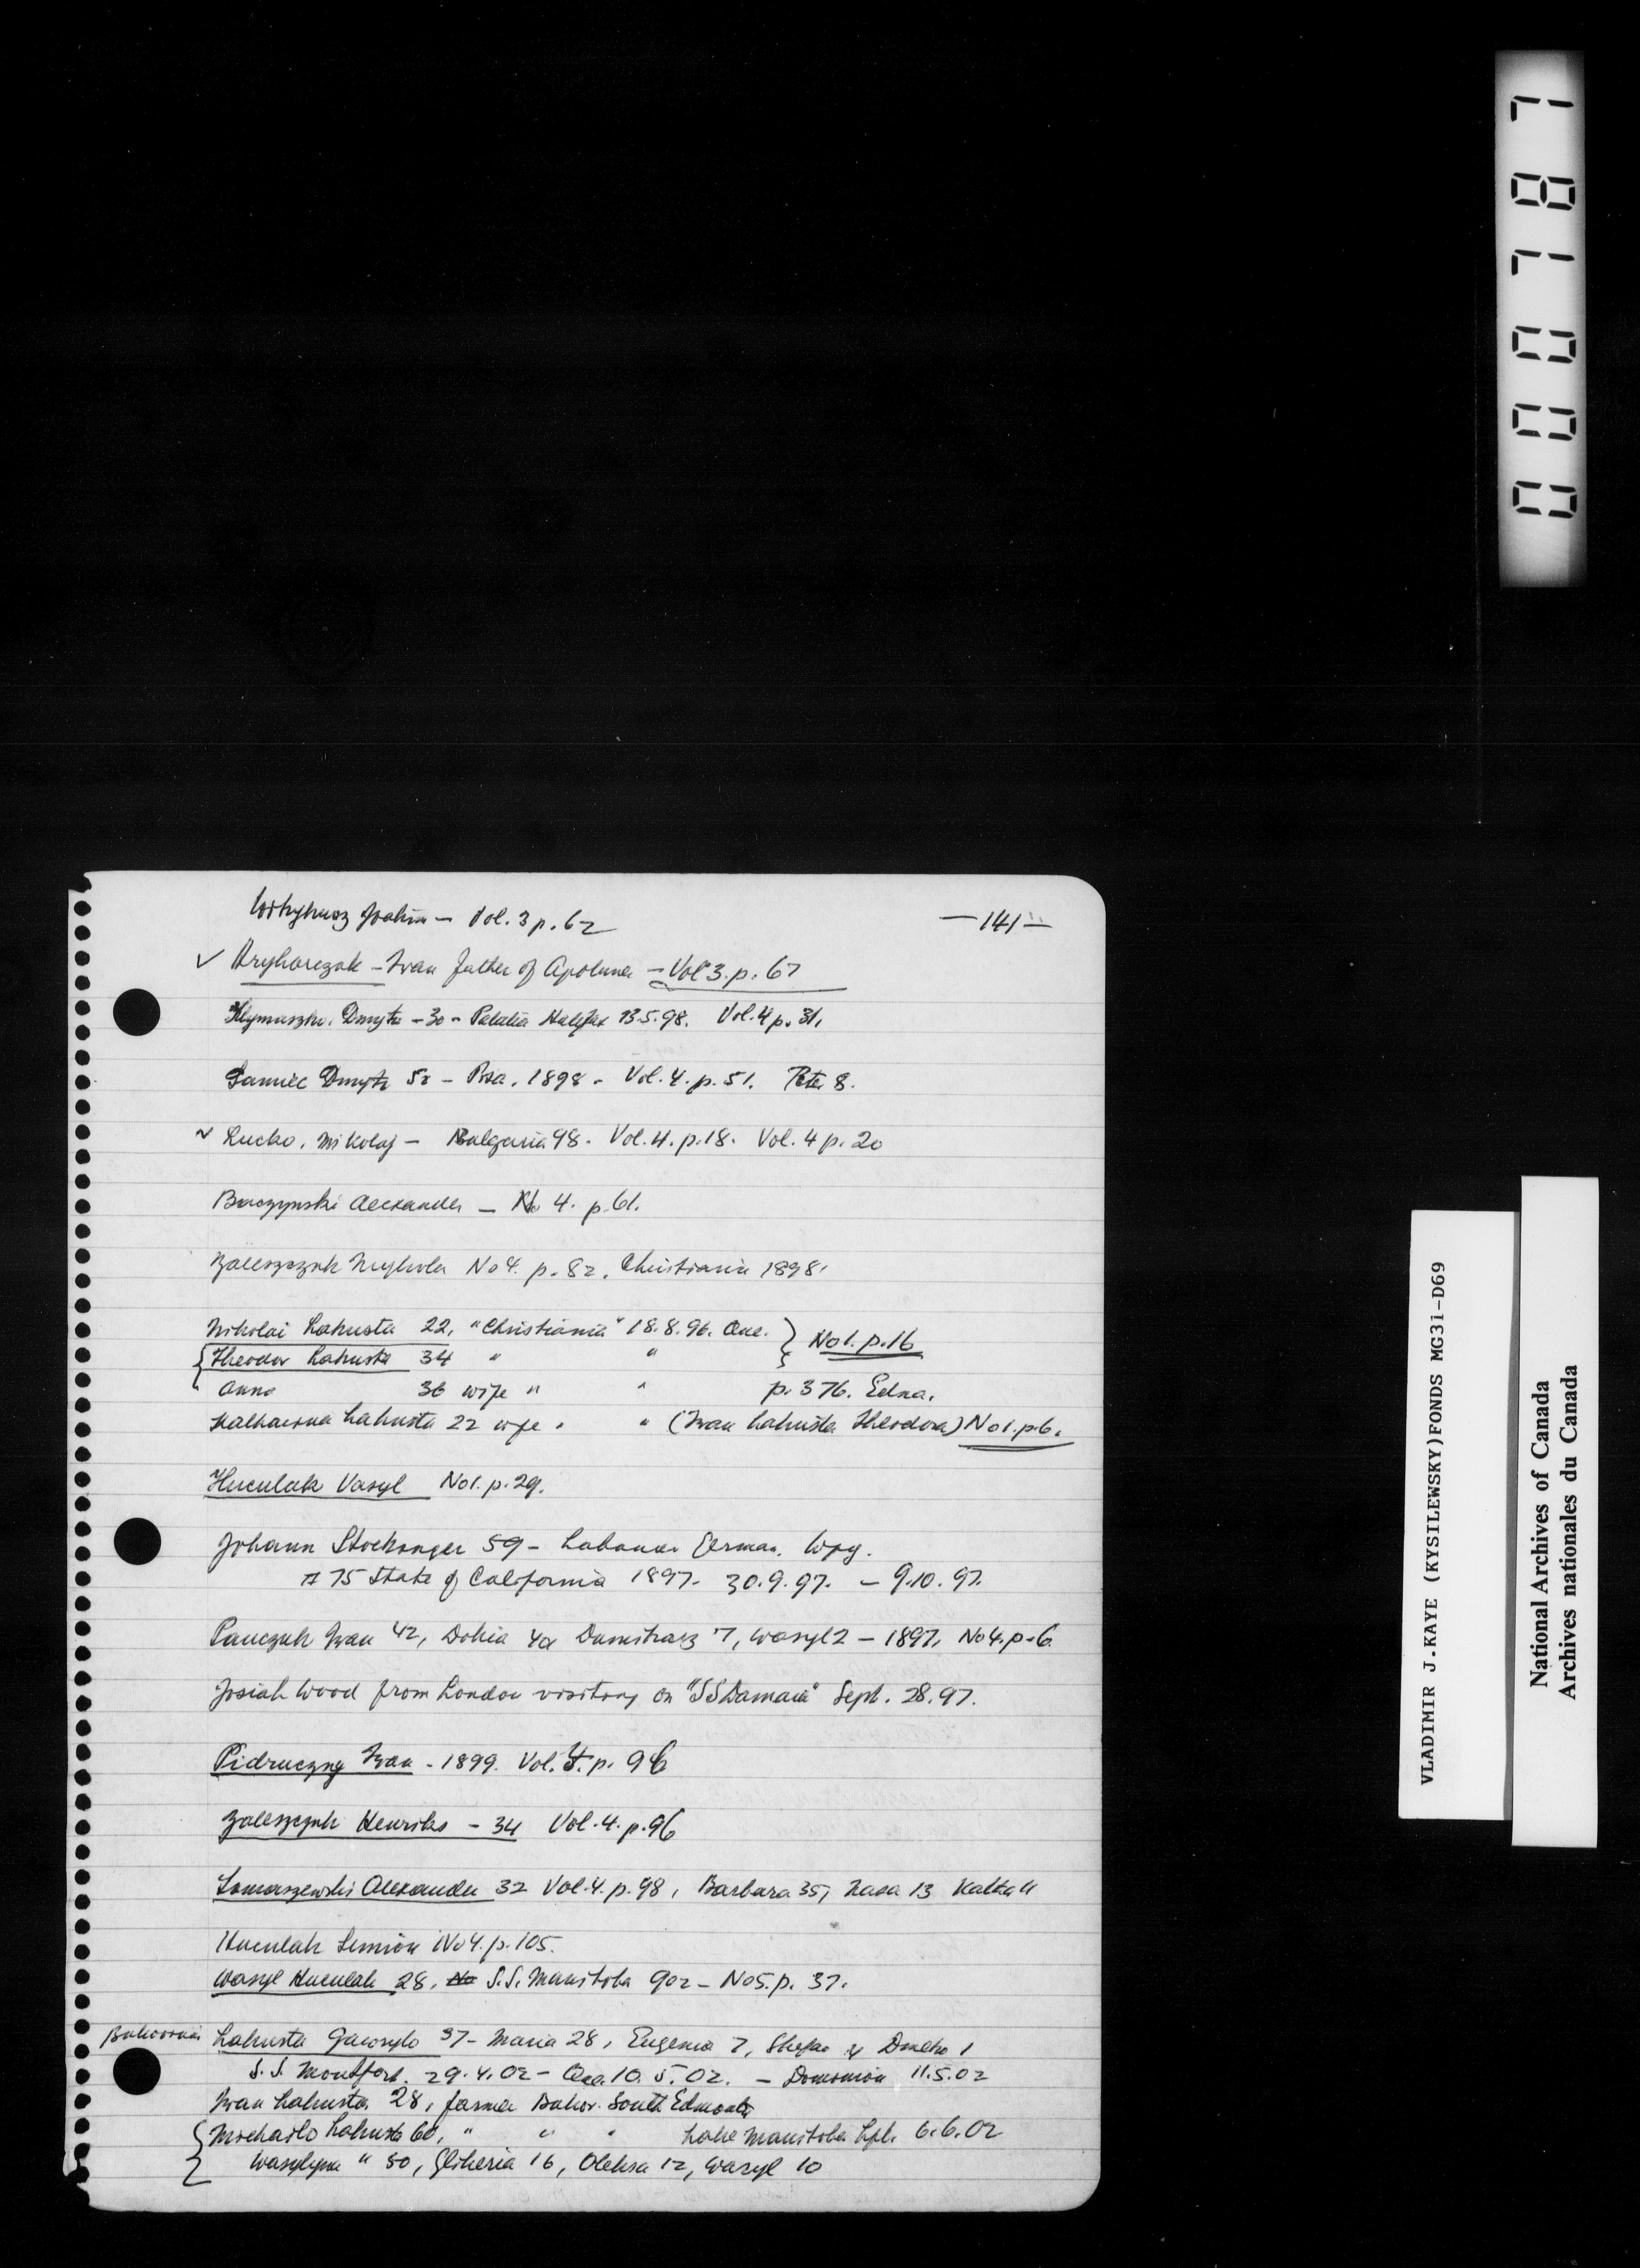 Joakim — Vol. 3 p. 62
— 141 —
✓ Hryhorczak — Ivan father of Apolunea — Vol 3. p. 67
Klymaszko. Dmytro — 30 — Palatia Halifax 13.5.98. Vol. 4 p. 31.
Dmytr 52 — 1898 — Vol. 4. p. 51. Peter 8.
✓ Lucko. Mikolaj — Bulgaria 98. Vol. 4. p. 18. Vol. 4 p. 20
Buczynski Alexander — No 4. p. 61.
Zaleszczuk Mykola No 4. p. 82. Christiania 1898.
Nikolai Lakusta 22, "Christiania" 18.8.96. Que. } No 1. p. 16
{ Theodor Lakusta 34 " "
Anna 36 wife " " p. 376. Edna.
Katharina Lakusta 22 wife " " (Ivan Lakusta Theodora) No 1. p. 6.
Huculak Vasyl No 1. p. 29.
Johann Stocksnger 59 — Labourer German. Wpg.
# 75 State of California 1897. 30.9.97. — 9.10.97.
Panczuk Ivan 42, Dokia 42 Dumitrasz 7, Wasyl 2 — 1897, No 4. p. 6
Josiah Wood from London visiting on "SS Damara" Sept. 28.97.
Pidruczny Ivan - 1899. Vol. 4. p. 96
Zaleszczuk Henriks — 34 Vol. 4. p. 96
Tomaszewski Alexander 32 Vol. 4. p. 98, Barbara 35, 13 11
Huculak Semion No 4. p. 105.
Wasyl Huculak 28, No S.S. Manitoba 902 — No 5. p. 37.
Bukovina Lakusta Gawrylo 37 — Maria 28, Eugenia 7, Stefan 4 Dmetro 1
S.S. Montfort. 29.4.02 — Que. 10.5.02. — Dominion 11.5.02
Ivan Lakusta 28, farmer Bukov. South Edmonton
{ Michailo Lakusta 60, " " " Lake Manitoba Lpl. 6.6.02
Wasylyna " 50, Glikeria 16, Oleksa 12, Wasyl 10
000787
VLADIMIR J.KAYE (KYSILEWSKY)FONDS MG31-D69
National Archives of Canada
Archives nationales du Canada